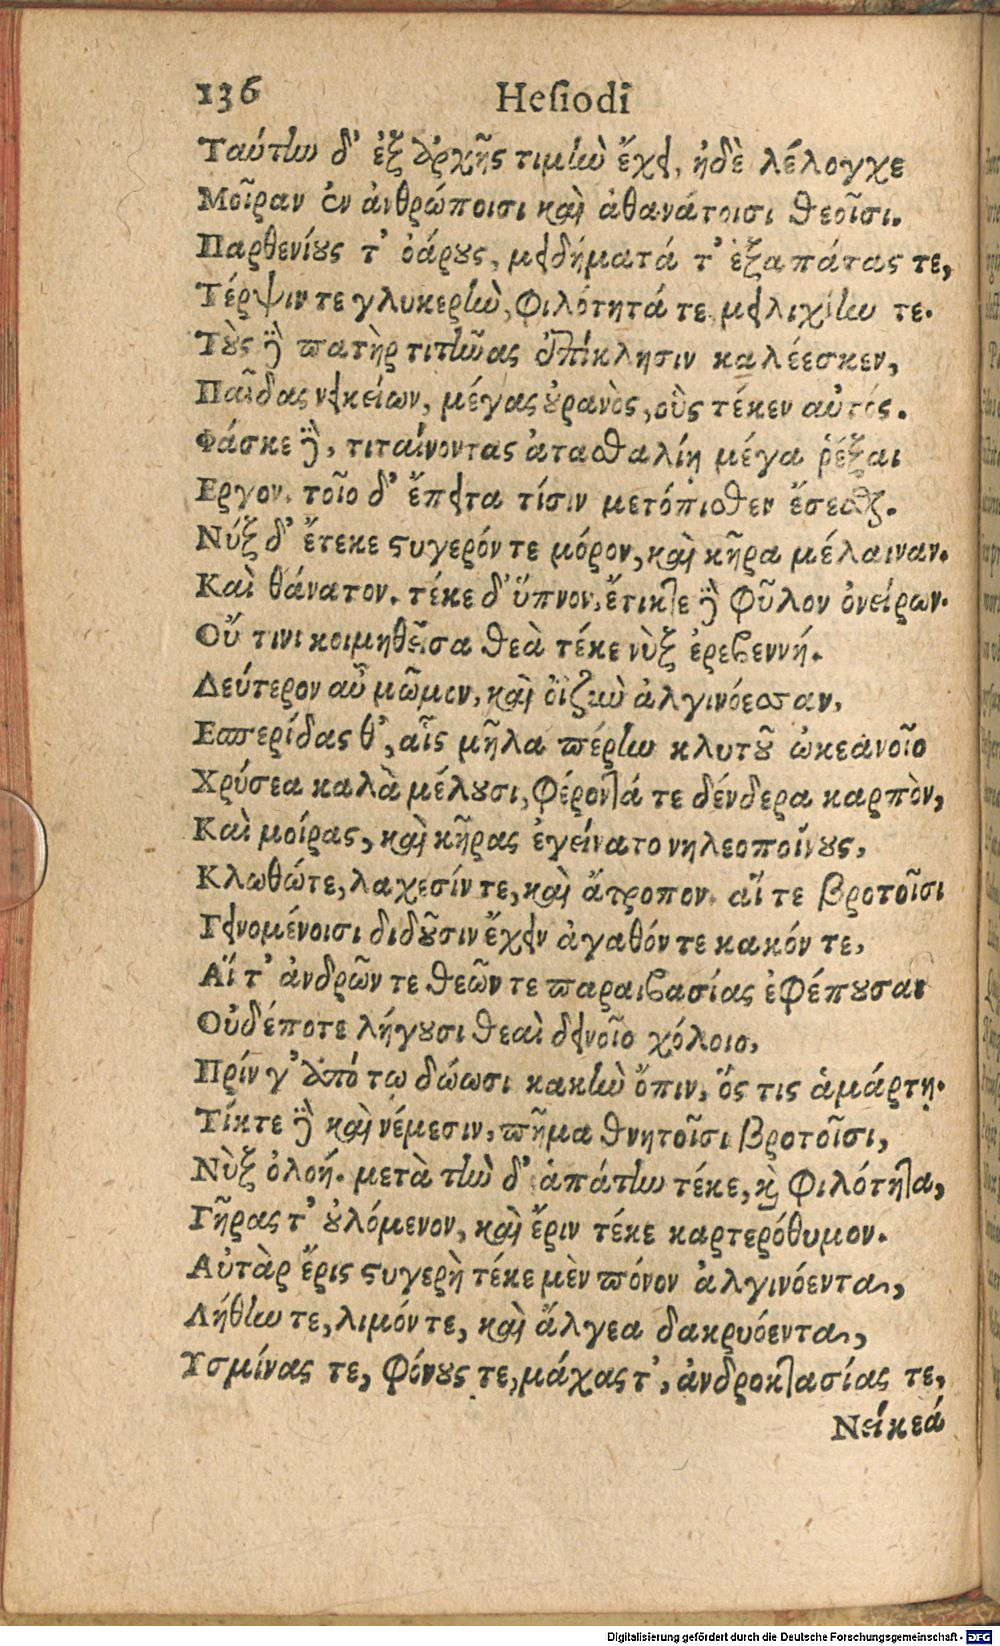 136 Hesiodi
Ταύτην δ' ἐξ ἀρχῆς τιμὴν ἔχει, ἠδὲ λέλογχε
Μοῖραν ἐν ἀνθρώποισι καὶ ἀθανάτοισι θεοῖσι.
Παρθενίους τ' ὀάρους, μειδήματά τ' ἐξαπάτας τε,
Τέρψιν τε γλυκερὴν, φιλότητά τε μειλιχίην τε.
Τοὺς δὲ πατὴρ τιτῆνας ἐπίκλησιν καλέεσκεν,
Παῖδας νεικείων, μέγας οὐρανὸς, οὓς τέκεν αὐτός.
Φάσκε δὲ, τιταίνοντας ἀτασθαλίῃ μέγα ῥέξαι
Εργον. τοῖο δ' ἔπειτα τίσιν μετόπισθεν ἔσεσθαι.
Νύξ δ' ἔτεκε στυγερόν τε μόρον, καὶ κῆρα μέλαιναν.
Καὶ θάνατον. τέκε δ' ὕπνον, ἔτικτε δὲ φῦλον ὀνείρων.
Οὔ τινι κοιμηθεῖσα θεὰ τέκε νὺξ ἐρεβεννή.
Δεύτερον αὖ μῶμον, καὶ ὀϊζὺν ἀλγινόεσσαν,
Εσπερίδας θ', αἷς μῆλα πέρην κλυτοῦ ὠκεανοῖο
Χρύσεα καλὰ μέλουσι, φέροντά τε δένδερα καρπὸν,
Καὶ μοίρας, καὶ κῆρας ἐγείνατο νηλεοποίνους,
Κλωθώτε, λαχεσίν τε, καὶ ἄτροπον. αἵ τε βροτοῖσι
Γεινομένοισι διδοῦσιν ἔχειν ἀγαθόν τε κακόν τε,
Αἵ τ' ἀνδρῶν τε θεῶν τε παραιβασίας ἐφέπουσαι
Οὐδέποτε λήγουσι θεαὶ δεινοῖο χόλοιο,
Πρίν γ' ἀπό τῳ δώωσι κακὴν ὄπιν, ὅς τις ἁμάρτῃ.
Τίκτε δὲ καὶ νέμεσιν, πῆμα θνητοῖσι βροτοῖσι,
Νὺξ ὀλοή. μετὰ τὴν δ' ἀπάτην τέκε, καὶ φιλότητα,
Γῆρας τ' οὐλόμενον, καὶ ἔριν τέκε καρτερόθυμον.
Αὐτὰρ ἔρις στυγερὴ τέκε μὲν πόνον ἀλγινόεντα,
Λήθην τε, λιμόν τε, καὶ ἄλγεα δακρυόεντα,
Υσμίνας τε, φόνους τε, μάχας τ', ἀνδροκτασίας τε,
Νείκεά
Digitalisierung gefördert durch die Deutsche Forschungsgemeinschaft - DFG